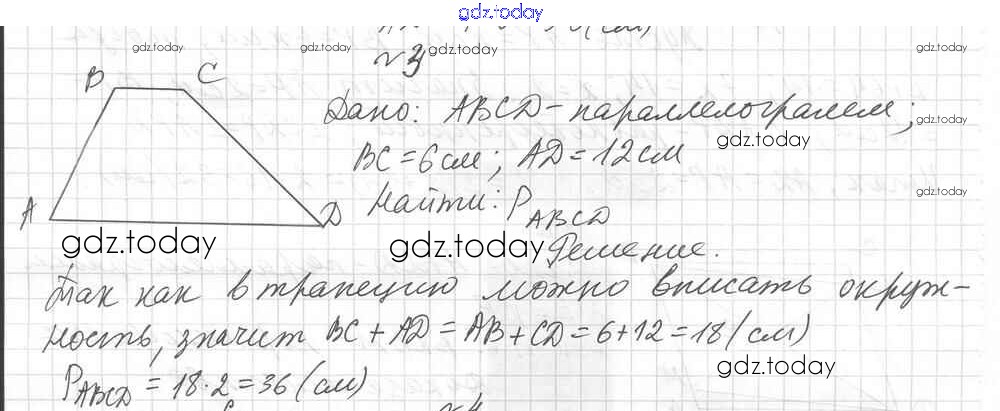 gdz.today
№3
B C
Дано: ABCD - параллелограмм;
BC = 6 см; AD = 12 см
Найти: P ABCD
A D
Решение.
Так как в трапецию можно вписать окруж-
ность, значит BC + AD = AB + CD = 6 + 12 = 18 (см)
P ABCD = 18 · 2 = 36 (см)
gdz.today
gdz.today
gdz.today
gdz.today
gdz.today
gdz.today
gdz.today
gdz.today
gdz.today
gdz.today